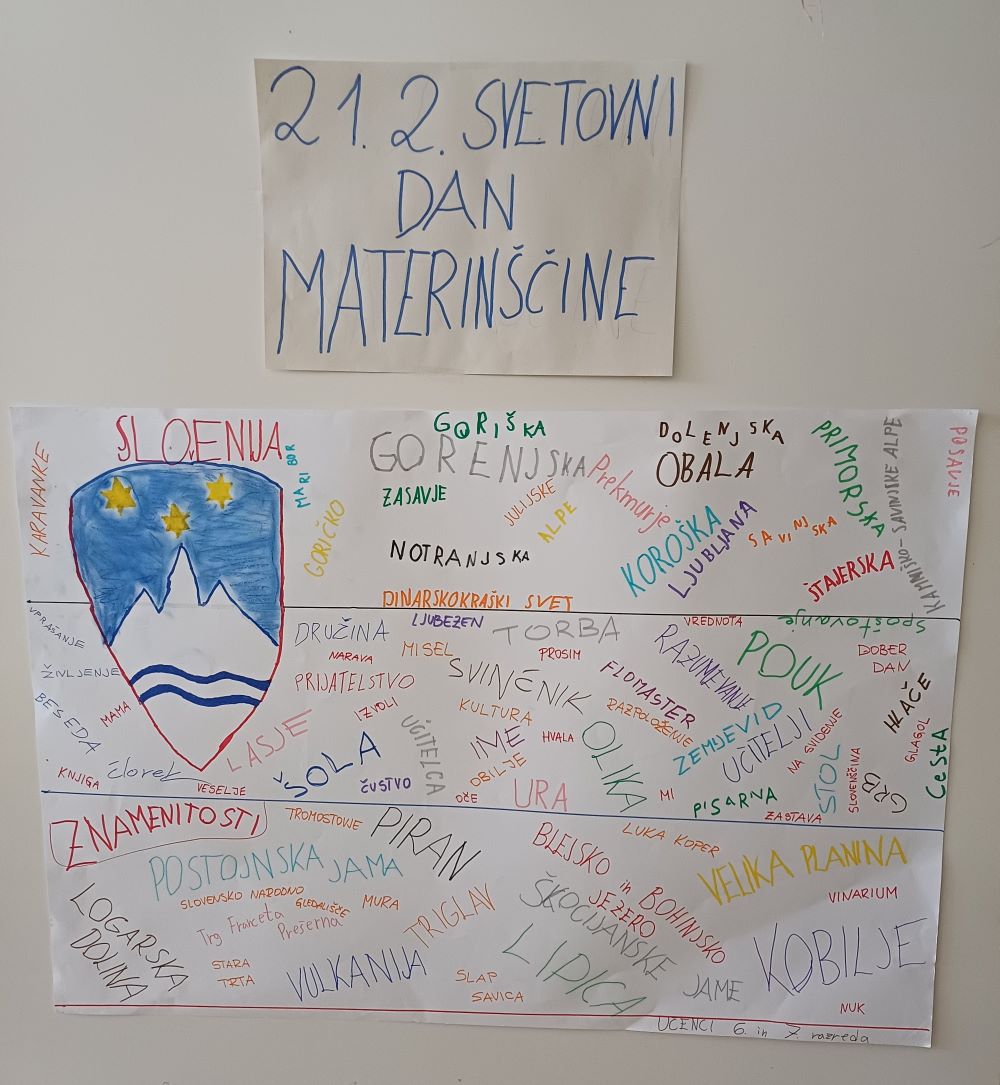 21. 2. SVETOVNI
DAN
MATERINŠČINE
SLOVENIJA
KARAVANKE
MARIBOR
GORIČKO
GORIŠKA
GORENJSKA
ZASAVJE
JULIJSKE
ALPE
NOTRANJSKA
DINARSKOKRAŠKI SVET
Prekmurje
DOLENJSKA
OBALA
KOROŠKA
LJUBLJANA
SAVINJSKA
PRIMORSKA
ŠTAJERSKA
KAMNIŠKO-SAVINJSKE ALPE
POSAVJE
VPRAŠANJE
ŽIVLJENJE
BESEDA
MAMA
KNJIGA
človek
VESELJE
LASJE
DRUŽINA
NARAVA
PRIJATELSTVO
IZVOLI
ŠOLA
ČUSTVO
LJUBEZEN
MISEL
UČITELCA
TORBA
SVINČNIK
PROSIM
KULTURA
IME
HVALA
OBILJE
OČE
URA
OLIKA
FLOMASTER
RAZPOLOŽENJE
MI
VREDNOTA
RAZUMEVANJE
ZEMJEVID
UČITELJI
PISARNA
POUK
NA SVIDENJE
STOL
ZASTAVA
spoštovanje
DOBER
DAN
HLAČE
GLAGOL
SLOVENŠČINA
GRB
CESTA
ZNAMENITOSTI
TROMOSTOVJE
PIRAN
POSTOJNSKA JAMA
SLOVENSKO NARODNO
GLEDALIŠČE
MURA
Trg Franceta
Prešerna
LOGARSKA
DOLINA
STARA
TRTA
VULKANIJA
TRIGLAV
SLAP
SAVICA
BLEJSKO
in BOHINJSKO
JEZERO
LUKA KOPER
ŠKOCIJANSKE
JAME
LIPICA
VELIKA PLANINA
VINARIUM
KOBILJE
NUK
UČENCI 6. in 7. razreda